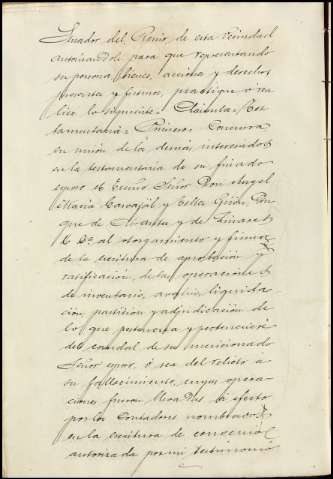 Senador del Reino, de esta vecindad
autorizandole para que representando
su persona, bienes, acciones y derechos
presentes y futuros, practique o rea
lice lo siguiente. Clausulas Tes
tamentarias: Primera: Concurra
en union de los demas interesados
en la testamentaria de su finado
esposo el Excmo Señor Don Angel
Maria Carvajal y Tellez Giron, Du
que de Abrantes y de Linares
al otorgamiento y firma
de la escritura de aprobacion y
ratificacion, de las operaciones
de inventario, avaluo, liquida
cion, particion y adjudicacion de
lo que pertenezca y perteneciere
del caudal de su mencionado
Señor esposo, o sea del relicto a
su fallecimiento, cuyas opera
ciones fueron llevadas á efecto
por los Contadores nombrados
en la escritura de convenio
autorizada por mi testimonio